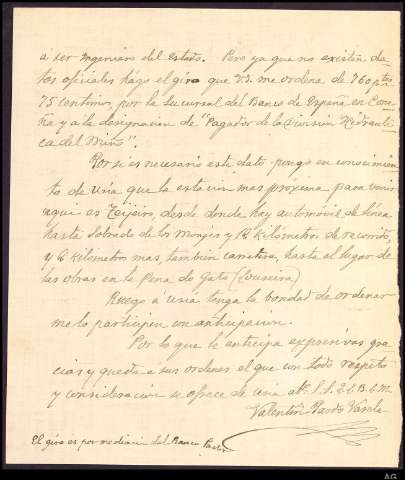 á ser Ingeniero del Estado. Pero ya que no existen da-
tos oficiales hago el giro que V.S. me ordena de 760 ptas
75 centimos, por la sucursal del Banco de España en Coru-
ña y a la designacion de "Pagador de la Division Hidrauli-
ca del Miño".
Por si es necesario este dato pongo en conocimien-
to de usia que la estacion mas proxima para venir
aqui es Teijeiro, desde donde hay automovil de linea
hasta Sobrado de los Monjes y kilómetros de recorrido,
y 6 kilometros mas, tambien carretera, hasta el lugar de
las obras en la Pena do Gato (Louseira)
Ruego a usia tenga la bondad de ordenar
me lo participen con anticipacion.
Por lo que le anticipa expresivas gra-
cias y queda a sus ordenes el que con todo respeto
y consideracion se ofrece de usia atto. S.S. q.b.s.m.
Valentin Pardo Varela
El giro es por mediacion del Banco Pastor
AG